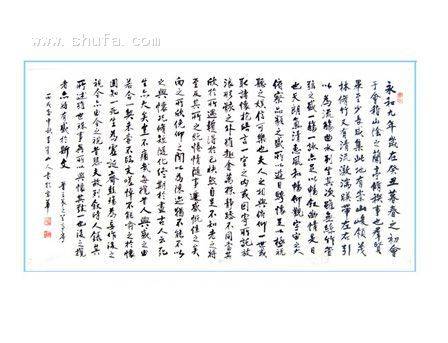 www.shufa.com
永和九年歲在癸丑暮春之初會
于會稽山陰之蘭亭脩禊事也群賢
畢至少長咸集此地有崇山峻領茂
林脩竹又有清流激湍暎帶左右引
以為流觴曲水列坐其次雖無絲竹管
弦之盛一觴一詠亦足以暢敘幽情是日
也天朗氣清惠風和暢仰觀宇宙之大
俯察品類之盛所以遊目騁懷足以極視
聽之娛信可樂也夫人之相與俯仰一世或
取諸懷抱悟言一室之內或因寄所託放
浪形骸之外雖趣舍萬殊靜躁不同當其
欣於所遇暫得於己快然自足不知老之將
至及其所之既惓情隨事遷感慨係之矣
向之所欣俛仰之間以為陳迹猶不能不以
之興懷況脩短隨化終期於盡古人云死
生亦大矣豈不痛哉每攬昔人興感之由
若合一契未嘗不臨文嗟悼不能喻之於懷
固知一死生為虛誕齊彭殤為妄作後之
視今亦由今之視昔悲夫故列敘時人錄其
所述雖世殊事異所以興懷其致一也後之攬
者亦將有感於斯文